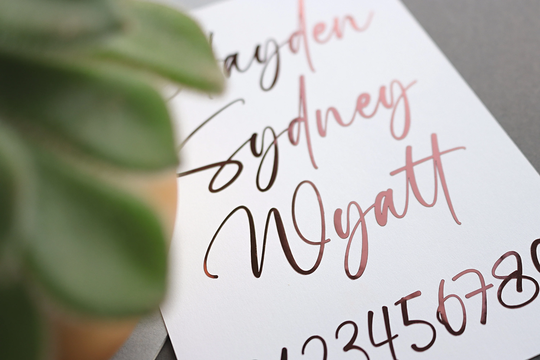 ayden
Sydney
Wyatt
12345678